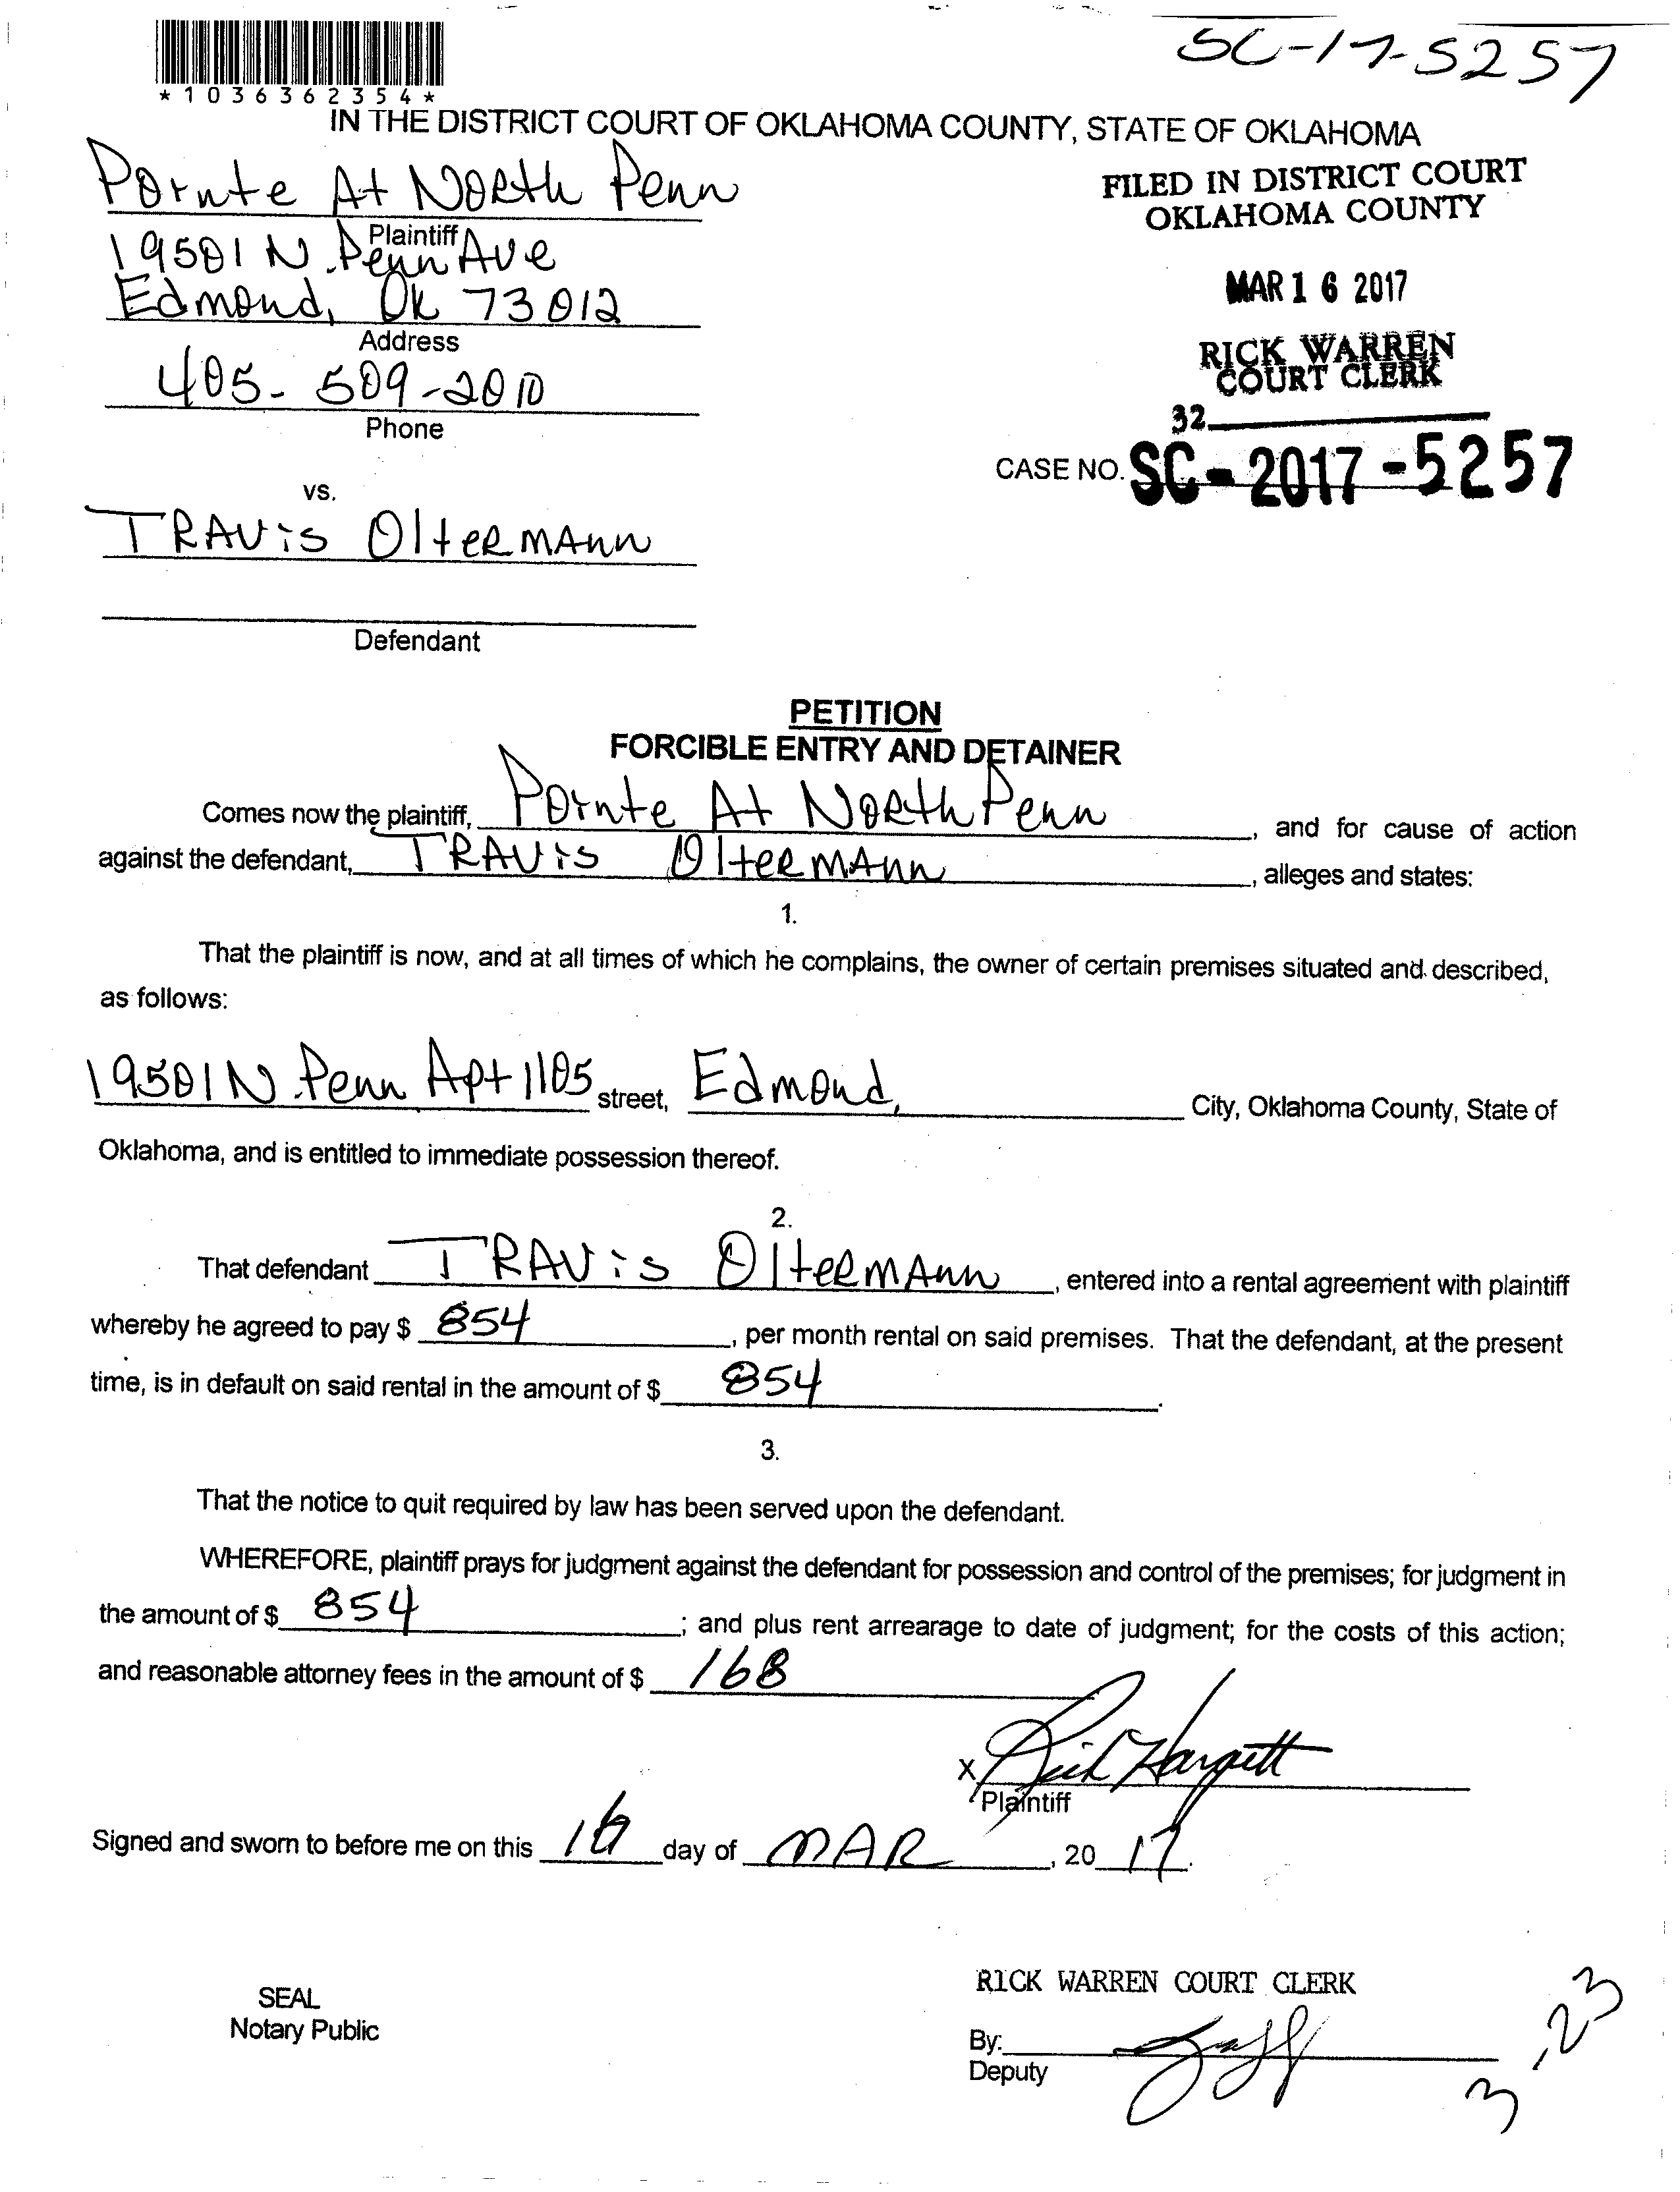 SC-17-5257
*1036362354*
IN THE DISTRICT COURT OF OKLAHOMA COUNTY, STATE OF OKLAHOMA
Pointe At North Penn
FILED IN DISTRICT COURT
OKLAHOMA COUNTY
Plaintiff
19501 N. Penn Ave
Edmond, Ok 73012
MAR 16 2017
Address
RICK WARREN
COURT CLERK
405-509-2010
Phone
32
CASE NO. SC-2017-5257
vs.
TRAVis OlteRmAnn
Defendant
PETITION
FORCIBLE ENTRY AND DETAINER
Comes now the plaintiff, Pointe At North Penn, and for cause of action
against the defendant, TRAVis OlteRmAnn, alleges and states:
1.
That the plaintiff is now, and at all times of which he complains, the owner of certain premises situated and described,
as follows:
19501 N. Penn Apt 1105 street, Edmond, City, Oklahoma County, State of
Oklahoma, and is entitled to immediate possession thereof.
2.
That defendant TRAVis OlteRmAnn, entered into a rental agreement with plaintiff
whereby he agreed to pay $ 854, per month rental on said premises. That the defendant, at the present
time, is in default on said rental in the amount of $ 854.
3.
That the notice to quit required by law has been served upon the defendant.
WHEREFORE, plaintiff prays for judgment against the defendant for possession and control of the premises; for judgment in
the amount of $ 854; and plus rent arrearage to date of judgment; for the costs of this action;
and reasonable attorney fees in the amount of $ 168
x Rick Hargett
Plaintiff
Signed and sworn to before me on this 16 day of MAR, 20 17.
SEAL
Notary Public
RICK WARREN COURT CLERK
By:
Deputy
3,23